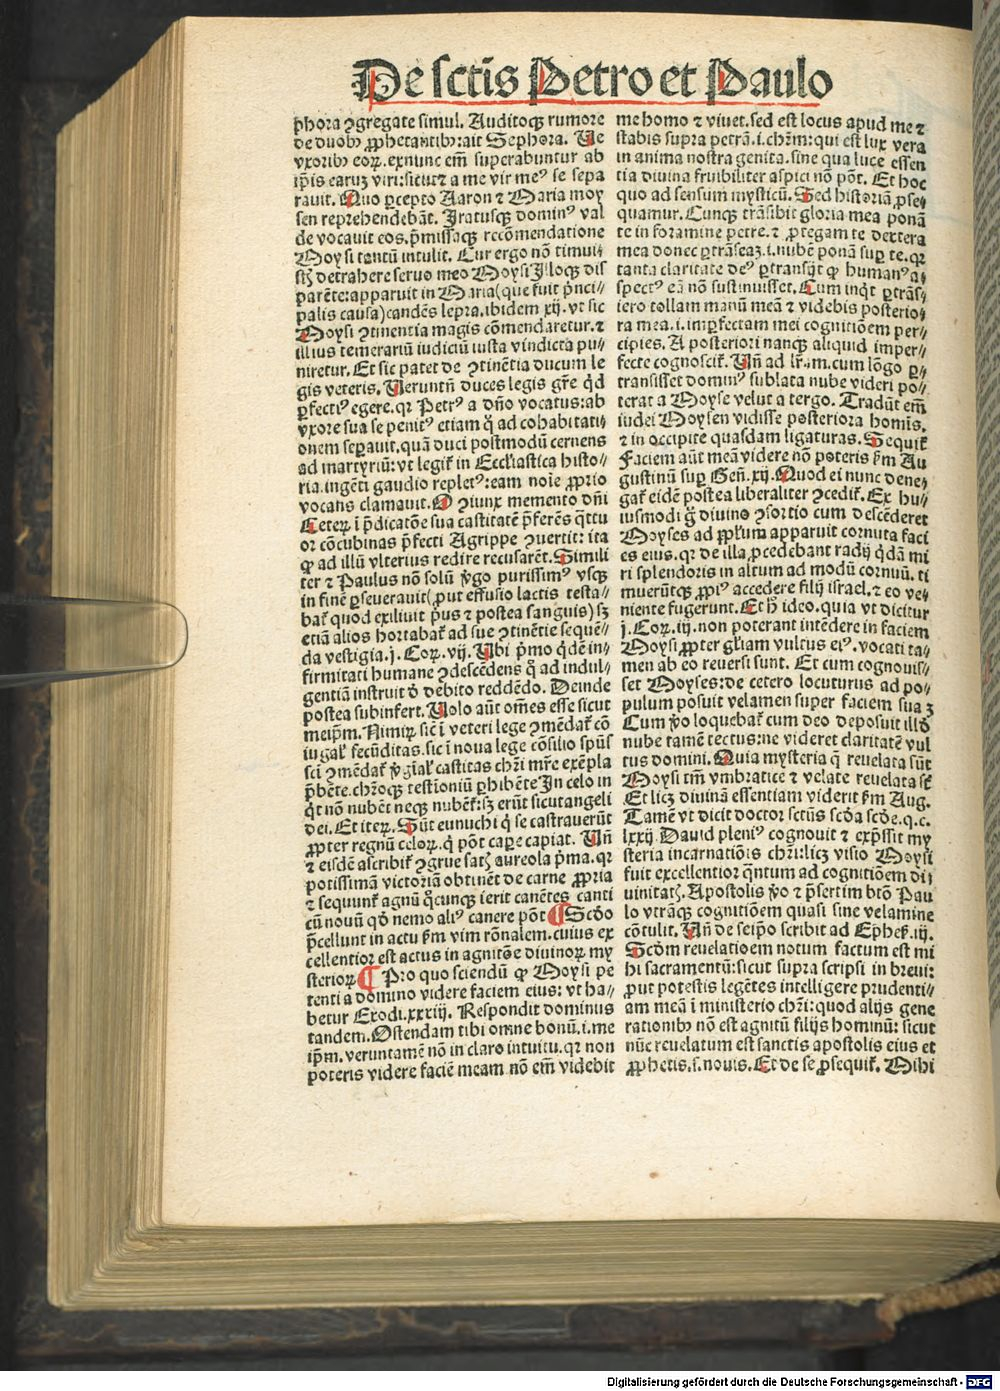 De sctis Petro et Paulo
phora ꝯgregate simul. Auditoqꝫ rumore
de duobꝰ ꝓphetantibꝰ: ait Sephora. Ue
vxoribꝰ eoꝝ. exnunc em̄ superabuntur ab
ip̄is earuꝫ viri: sicut ⁊ a me vir meꝰ se sepa
rauit. Quo p̲cepto Aaron ⁊ Maria moy
sen reprehendebāt. Iratusqꝫ dominꝰ val
de vocauit eos. p̄missaqꝫ recōmendatione
Moysi tantū intulit. Cur ergo nō timui⸗
stꝭ detrahere seruo meo Moysi Illoqꝫ dis
parēte: apparuit in Maria (que fuit p̄nci⸗
palis causa) candēs lepra. ibidem xij. vt sic
Moysi ꝯtinentia magis cōmendaretur. ⁊
illius temerariū iudiciū iusta vindicta pu⸗
niretur. Et sic patet de ꝯtinētia ducum le
gis veteris. Ueruntn̄ duces legis gr̄e qͥd
ꝑfectiꝰ egere. qꝛ Petrꝰ a dn̄o vocatus: ab
vxore sua se penitꝰ etiam qͣ ad cohabitati⸗
onem seꝑauit. quā duci postmodū cernens
ad martyriū: vt legit̄ in Eccl̄iastica histo⸗
ria. ingēti gaudio repletꝰ: eam noīe ꝓprio
vocans clamauit. O ꝯiunx memento dn̄i
Ceteꝝ ī p̄dicatōe sua castitatē p̄ferēs qͣttu
or cōcubinas p̄fecti Agrippe ꝯuertit: ita
ꝙ ad illū vlterius redire recusarēt. Simili
ter ⁊ Paulus nō solū v̄go purissimꝰ vsqꝫ
in finē ꝑseuerauit (ꝓut effusio lactis testa⸗
bat̄ quod exiliuit p̄us ⁊ postea sanguis) sꝫ
etiā alios hortabat̄ ad sue ꝯtinētie sequē⸗
da vestigia. j. Coꝝ. vij. Ubi p̄mo qͥdē in⸗
firmitati humane ꝯdescēdens qͣ ad indul⸗
gentiā instruit d̓ debito reddēdo. Deinde
postea subinfert. Uolo aūt om̄es esse sicut
meip̄m. Nimiꝝ sic ī veteri lege ꝯmēdat̄ cō
iugal̓ fecūditas. sic ī noua lege cōsilio sp̄us
sci ꝯmēdat̄ v̓gīal̓ castitas chr̄i mr̄e exēpla
p̄bēte. chr̄oqꝫ testīoniū ꝑhibēte In celo in
qͥt nō nubēt neqꝫ nubēt̄: sꝫ erūt sicut angeli
dei. Et iteꝝ. Sūt eunuchi qͥ se castrauerūt
ꝓpter regnū celoꝝ. qͥ pōt caꝑe capiat. Uñ
⁊ eisdē ascribit̄ ꝯgrue satꝭ aureola p̄ma. qꝛ
potissimā victoriā obtinēt de carne ꝓpria
⁊ sequunt̄ agnū qͦcunqꝫ ierit canētes canti
cū nouū qd̓ nemo aliꝰ canere pōt ¶ Scd̓o
p̄cellunt in actu ẜm vim rōnalem. cuius ex
cellentior est actus in agnitōe diuinoꝝ my
sterioꝝ ¶ Pro quo sciendū ꝙ Moysi pe
tenti a domino videre faciem eius: vt ha⸗
betur Exodi. xxxiij. Respondit dominus
tandem. Ostendam tibi omne bonū. i. me
ip̄m. veruntamē nō in claro intuitu. qꝛ non
poteris videre faciē meam nō em̄ videbit
me homo ⁊ viuet. sed est locus apud me ⁊
stabis supra petrā. i. chr̄m: qui est lux vera
in anima nostra genita. sine qua luce essen
tia diuina fruibiliter aspici nō pōt. Et hoc
quo ad sensum mysticū. Sed historiā ꝓse⸗
quamur. Cunqꝫ trāsibit gloria mea ponā
te in foramine petre. ⁊ ꝓtegam te dextera
mea donec ꝑtrāseaꝫ. i. nubē ponā suꝑ te. qꝛ
tanta claritate deꝰ ꝑtransijt ꝙ humanꝰ a⸗
spectꝰ eā nō sustinuisset. Cum inqͥt ꝑtrās⸗
iero tollam manū meā ⁊ videbis posterio⸗
ra mea. i. imꝑfectam mei cognitiōem per⸗
cipies. A posteriori nanqꝫ aliquid imper⸗
fecte cognoscit̄. Uñ ad lr̄am. cum lōgo ꝑ⸗
transisset dominꝰ sublata nube videri po⸗
terat a Moyse velut a tergo. Tradūt em̄
iudei Moysen vidisse posteriora homīs.
⁊ in occipite quasdam ligaturas. Sequit̄
Faciem aūt meā videre nō poteris ẜm Au
gustinū suꝑ Geñ. xij. Quod ei nunc dene⸗
gat̄ eidē postea liberaliter ꝯcedit̄. Ex hu⸗
iusmodi g̊ diuino ꝯsortio cum descēderet
Moyses ad pplm̄ apparuit cornuta faci
es eius. qꝛ de illa ꝓcedebant radij qͥdā mi
ri splendoris in altum ad modū cornuū. ti
muerūtqꝫ ꝓpiꝰ accedere filij israel. ⁊ eo ve⸗
niente fugerunt. Et h̓ ideo. quia vt dicitur
j. Coꝝ. iij. non poterant intēdere in faciem
Moysi ꝓpter gl̄iam vultus eiꝰ. vocati ta⸗
men ab eo reuersi sunt. Et cum cognouis⸗
set Moyses: de cetero locuturus ad po⸗
pulum posuit velamen super faciem suaꝫ
Cum v̓o loquebat̄ cum deo deposuit illd̓
nube tamē tectus: ne videret claritatē vul
tus domini. Quia mysteria qͣ reuelata sūt
Moysi tm̄ vmbratice ⁊ velate reuelata st̄
Et licꝫ diuinā essentiam viderit ẜm Aug.
Tamē vt dicit doctor sctūs scd̓a scd̓e. q. c.
lxxij. Dauid pleniꝰ cognouit ⁊ exp̄ssit my
steria incarnatiōis chr̄i: licꝫ visio Moysi
fuit excellentior qͣntum ad cognitiōem di⸗
uinitatꝭ. Apostolis v̓o ⁊ p̄sertim btō Pau
lo vtrāqꝫ cognitiōem quasi sine velamine
cōtulit. Uñ de seip̄o scribit ad Ephes̄. iij.
Scd̓m reuelatioem notum factum est mi
hi sacramentū: sicut supra scripsi in breui:
ꝓut potestis legētes intelligere prudenti⸗
am meā ī ministerio chr̄i: quod alijs gene
rationibꝰ nō est agnitū filijs hominū: sicut
nūc reuelatum est sanctis apostolis eius et
ꝓphetis. s. nouis. Et de se ꝓsequit̄. Mihi
Digitalisierung gefördert durch die Deutsche Forschungsgemeinschaft - DFG